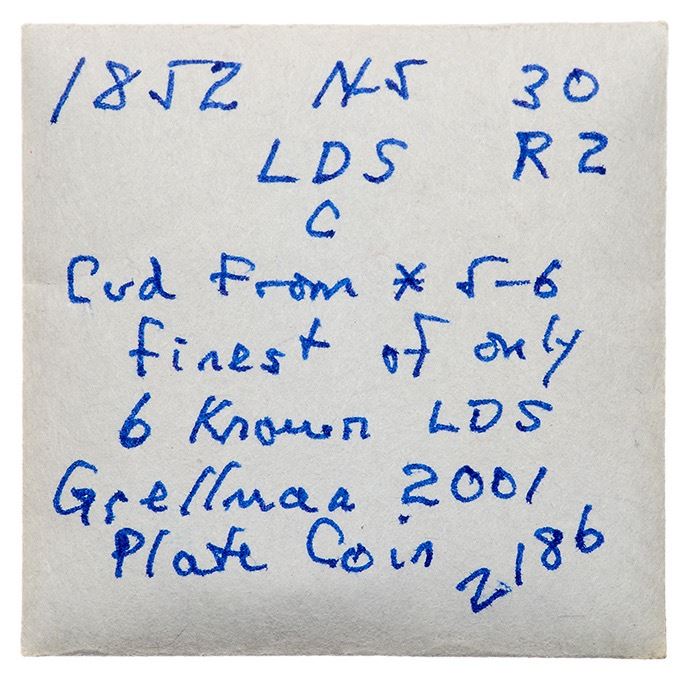 1852 N5 30
LDS R2
C
Cud From * 5-6
finest of only
6 Known LDS
Grellman 2001
Plate Coin 2186